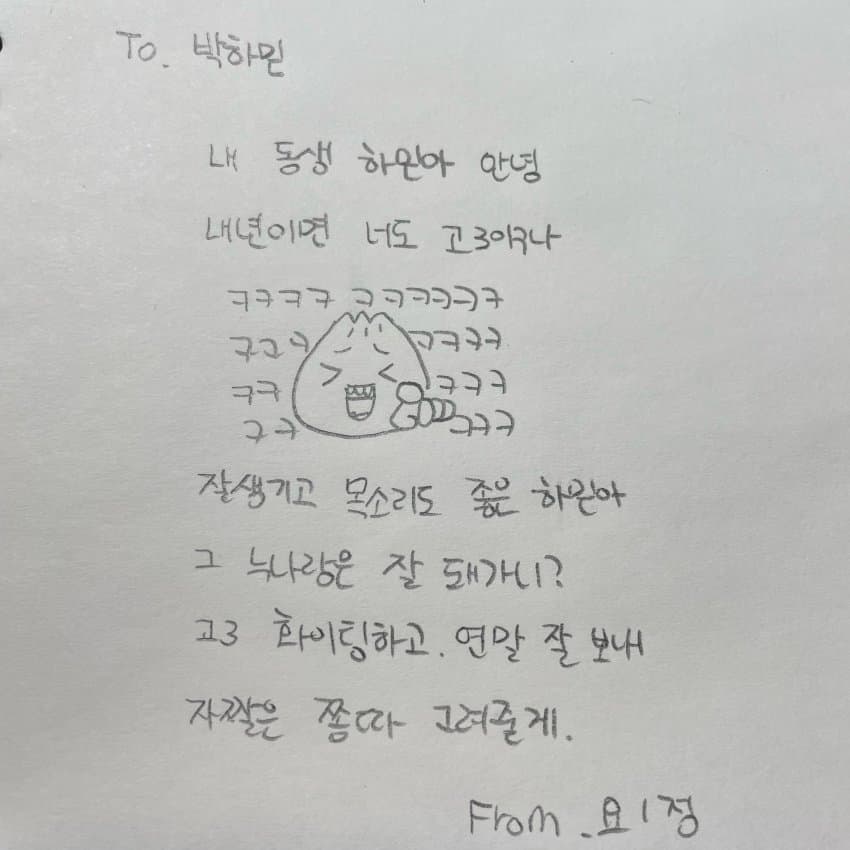 To. 박하민
내 동생 하민아 안녕
내년이면 너도 고3이구나
ㅋㅋㅋㅋ ㅋㅋㅋㅋㅋㅋ
ㅋㅋㅋ ㅋㅋㅋㅋ
ㅋㅋ ㅋㅋㅋ
ㅋㅋ ㅋㅋㅋ
잘생기고 목소리도 좋은 하민아
그 눅나랑은 잘 돼가니?
고3 화이팅하고. 연말 잘 보내
자짤은 쫌따 그려줄게.
From. 요1정